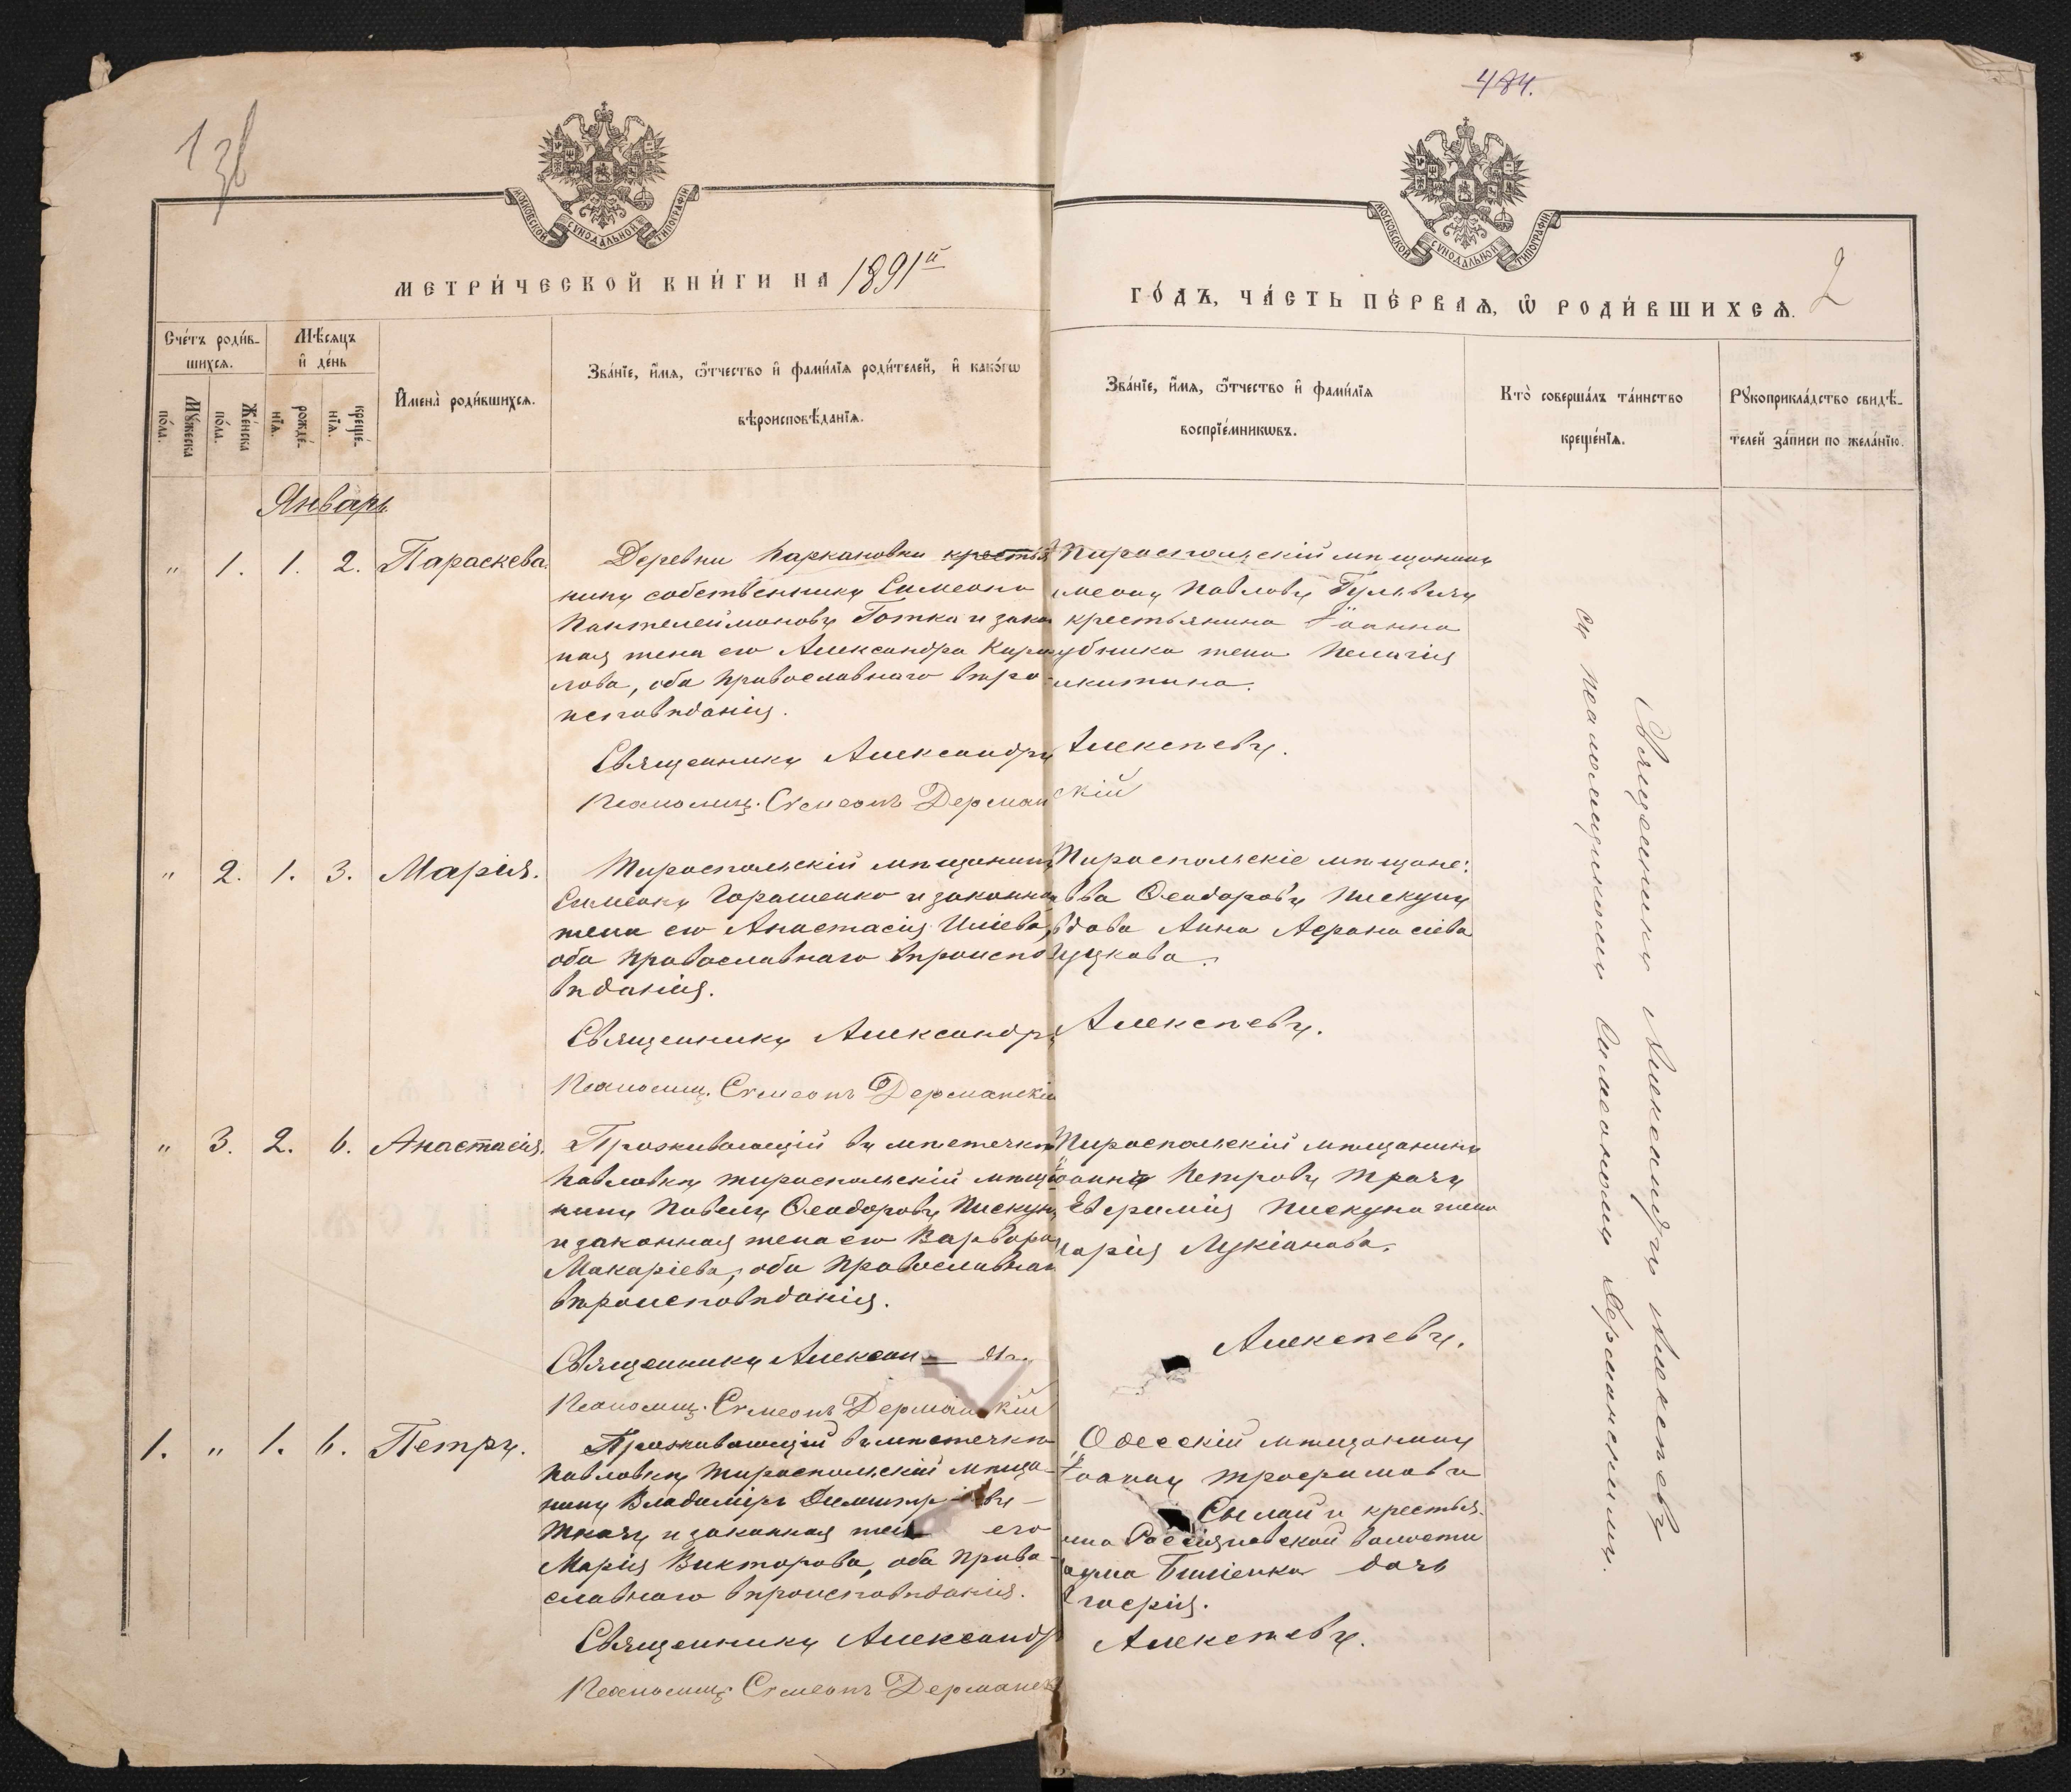 484.
1 зв
МОСКОВСКОЙ СѴНОДАЛЬНОЙ ТИПОГРАФІИ
МОСКОВСКОЙ СѴНОДАЛЬНОЙ ТИПОГРАФІИ
МЕТРИ́ЧЕСКОЙ КНИ́ГИ НА 1891й
ГО́ДЪ, ЧА́СТЬ ПЕ́РВАѦ, Ѡ РОДИ́ВШИХСѦ. 2
Сче́тъ роди́в-
шихсѧ.
Мꙋ́жеска
по́ла.
Же́нска
по́ла.
Мѣ́сѧцъ
и҆ де́нь
рожде́-
нїѧ.
креще́-
нїѧ.
И҆мена̀ роди́вшихсѧ.
Зва́нїе, и҆́мѧ, ѻ҆́тчество и҆ фами́лїѧ роди́телей, и҆ како́гѡ
вѣроисповѣ́данїѧ.
Зва́нїе, и҆́мѧ, ѻ҆́тчество и҆ фами́лїѧ
воспрїе́мникѡвъ.
Кто̀ соверша́лъ та́инство
креще́нїѧ.
Рꙋкоприкла́дство свидѣ́-
телей за́писи по жела́нїю.
Январь
" 1. 1. 2. Параскева.
Деревни Паркановки крестья
нинъ собственникъ Симеонъ
Пантелеймоновъ Готка и закон
ная жена его Александра Кирил
лова, оба православнаго вѣро-
исповѣданія.
Тираспольскій мѣщанинъ
Симеонъ Павловъ
крестьянина Іоанна
жена Пелагія
Никитина.
Священникъ Александръ Алексѣевъ.
Псаломщ. Симеонъ Дерманскій
" 2. 1. 3. Марія.
Тираспольскій мѣщанинъ
Симеонъ Горашенко и законная
жена его Анастасія Иліева,
оба православнаго вѣроиспо
вѣданія.
Тираспольскіе мѣщане:
Савва Ѳеодоровъ Пискунъ
вдова Анна Аѳанасіева
Священникъ Александръ Алексѣевъ.
Псаломщ. Симеонъ Дерманскій
" 3. 2. 6. Анастасія.
Проживающій въ мѣстечкѣ
Павловкѣ тираспольскій мѣща
нинъ Павелъ Ѳеодоровъ Пискунъ
и законная жена его Варвара
Макаріева, оба православнаго
вѣроисповѣданія.
Тираспольскій мѣщанинъ
Іоаннъ Петровъ Ткачъ
Евфимія Пискуна жена
Марія Лукіанова.
Священникъ Алексан Алексѣевъ.
Псаломщ. Симеонъ Дерманскій
1. " 1. 6. Петръ.
Проживающій въ мѣстечкѣ
Павловкѣ Тираспольскій мѣща-
нинъ Владиміръ Димитріевъ
Ткачъ и законная жена его
Марія Викторова, оба право-
славнаго вѣроисповѣданія.
Одесскій мѣщанинъ
Іоаннъ Трофимовъ
и крестья-
нина Россіяновской волости
дочь
Глафира.
Священникъ Александръ Алексѣевъ.
Псаломщ. Симеонъ Дерманскій
Священникъ Александръ Алексѣевъ
съ псаломщикомъ Симеономъ Дерманскимъ.